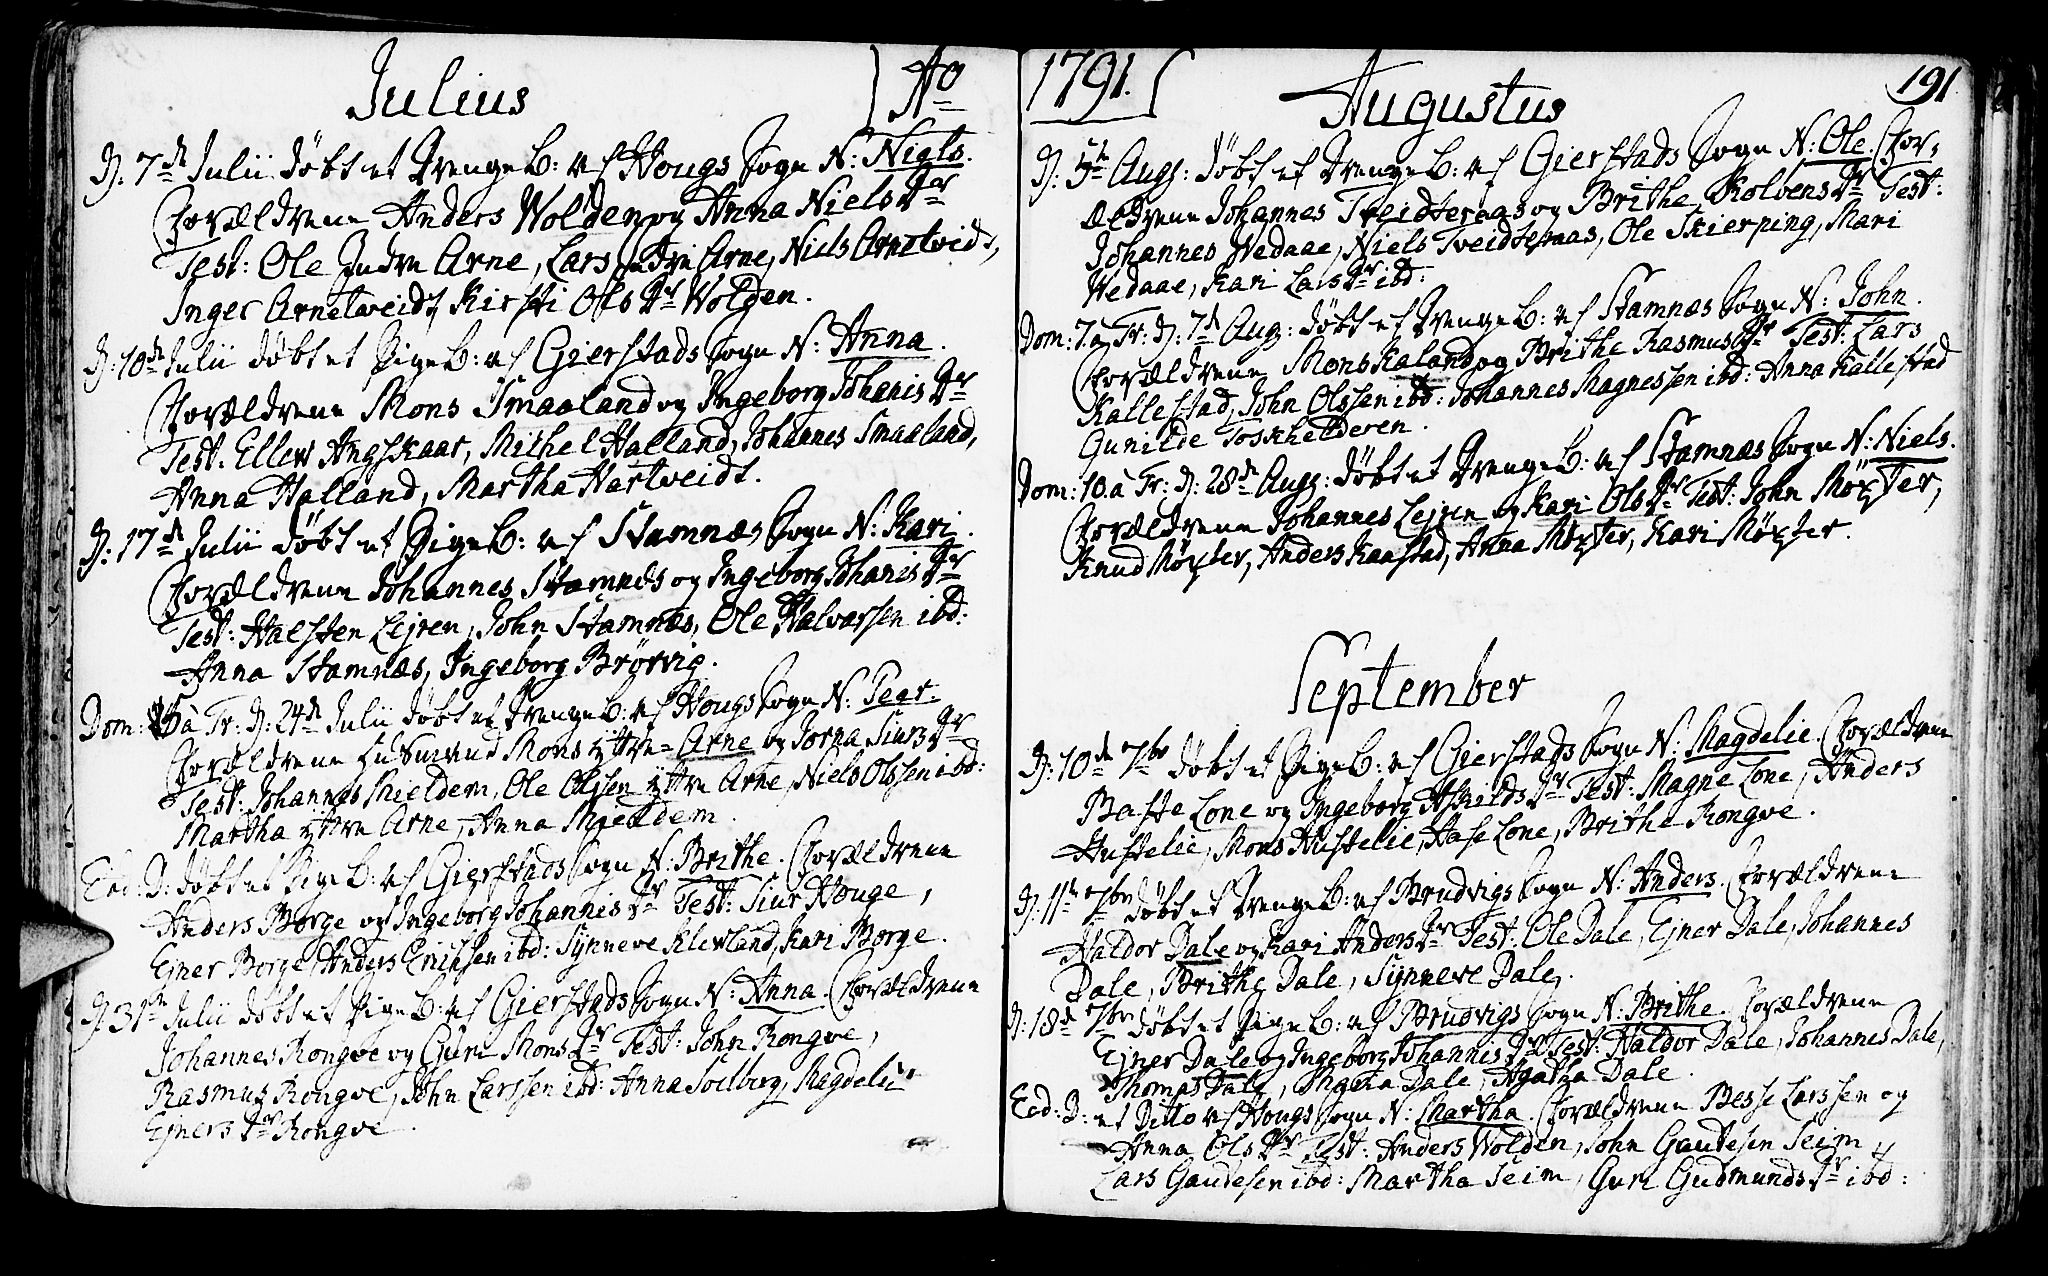 Julius Ao
D: 7de Julii døbt et Drenge B: af Hougs Sogn N: Niels.
Forældrene Anders Wolden og Anna Niels Dr
Test: Ole Indre Arne, Lars Indre Arne, Niels Arnetveidt,
Inger Arnetveidt, Kirsti Ols Dr Wolden.
D: 10de Julii døbt et Pige B: af Gierstads Sogn N: Anna.
Forældrene Mons Smaaland og Ingeborg Johanis Dr
Test: Ellew Angskaar, Michel Halland, Johannes Smaaland,
Anna Halland, Martha Hartveidt.
D: 17de Julii døbt et Pige B: af Stamnæs Sogn N: Kari.
Forældrene Johannes Stamnæs og Ingeborg Johanis Dr
Test: Halsten Lejren, John Stamnæs, Ole Halvorsen ibd:
Anna Stamnæs, Ingeborg Brørvig.
Dom: 5 à Tr: D: 24de Julii døbt et Drenge B: af Hougs Sogn N: Peer.
Forældrene Huusmand Mons Yttre Arne og Jorna Siurs Dr
Test: Johannes Mieldem, Ole Olsen Yttre Arne, Niels Olssen ibd:
Martha Yttre Arne, Anna Mieldem.
Eod: D: døbt et Pige B: af Gierstads Sogn N: Brithe. Forældrene
Anders Borge og Ingeborg Johannis Dr Test: Siur Houge,
Ejner Borge, Anders Erichsen ibd: Synneve Klewland, Kari Borge.
D: 31te Julii døbt et Pige B: af Gierstads Sogn N: Anna. Forældrene
Johannes Rongve og Guri Mons Dr Test: John Rongve,
Rasmus Rongve, John Larssen ibd: Anna Soelberg, Magdeli
Ejners Dr Rongve.
1791. Augustus 191
D: 5te Aug: døbt et Drenge B: af Gierstads Sogn N: Ole. For-
ældrene Johannes Tveidteraas og Brithe Kolbens Dr Test:
Johannes Wedaae, Niels Tveidteraas, Ole Skierping, Mari
Wedaae, Kari Lars Dr ibd:
Dom: 7 à Tr: D: 7de Aug: døbt et Drenge B: af Stamnæs Sogn N: John.
Forældrene Mons Kaland og Brithe Rasmus Dr Test: Lars
Kallestad, John Olssen ibd: Johannes Magnessen ibd: Anna Kallestad
Gunilde Toskhelderen.
Dom: 10 à Tr: D: 28de Aug: døbt et Drenge B: af Stamnæs Sogn N: Niels.
Forældrene Johannes Lejren og Kari Ols Dr Test: John Møxter,
Knud Møxter, Anders Kaastad, Anna Møxter, Kari Møxter.
September
D: 10de 7br døbt et Pige B: af Gierstads Sogn N: Magdelie. Forældrene
Baste Lone og Ingeborg Askilds Dr Test: Magne Lone, Anders
Hustelie, Mons Hustelie, Hase Lone, Brithe Rongve.
D: 11te 7br døbt et Drenge B: af Brudvigs Sogn N: Anders. Forældrene
Haldor Dale og Kari Anders Dr Test: Ole Dale, Ejner Dale, Johannes
Dale, Brithe Dale, Synneve Dale.
D: 18de 7br døbt et Pige B: af Brudvigs Sogn N: Brithe. Forældrene
Ejner Dale og Ingeborg Johannis Dr Test: Haldor Dale, Johannes Dale,
Thomas Dale, Maria Dale, Agatha Dale.
Eod: D: et Ditto af Hougs Sogn N: Martha. Forældrene Besse Larssen og
Anna Ols Dr Test: Anders Wolden, John Gautesen Seim,
Lars Gautesen ibd: Martha Seim, Guri Gudmunds Dr ibd: